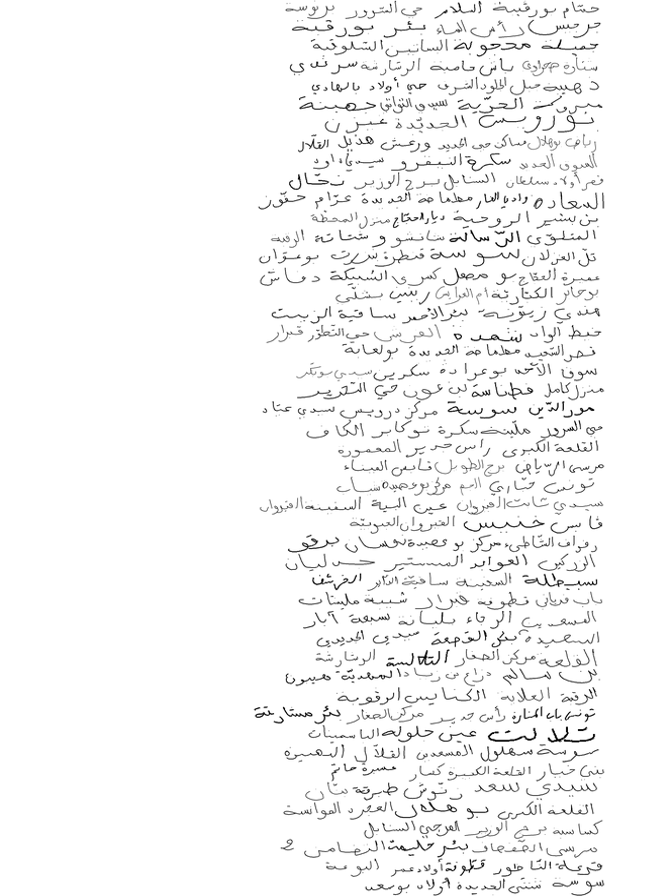 حمام بورقيبة السلام حي السرور بريوسة
جرجيس رأس الماء بئر بورقبة
جميلة محجوبة البساتين السلوقية
منارة حمزاوي ياس فامية الرشارشة سرغدي
ذهيبة جبل الجلود الشرف حي أولاد بالهادي
مبروكة الحرّية سيدي التواتي جهينة
نوردبس الجديدة عبرن
رياض بوهلال مساكن حي الجديد ورغش هذيل القلال
العيون الجديد سكرة النيفرو سيدي داود
قصر أولاد سلطان السنابل برج الوزير نحّال
السعادة وادي الغار مطماطة الجديدة عزّام حفّوز
بن بشير الروحية ديار الحجاج منزل المحطة
المتلوّي الرّسالة سانشو وشتاتة الرقبة
تل الغزلان سوسة قنطرة بنزرت بوعوان
عميرة الحجّاج بو مهل كسرى الشبيكة دقاش
بوجابر الكتارية أم العرايس رنين بشلّي
هندي زيتونة بئر الأحمر ساقية الزيت
خيط الواد شهدة العريش حي التطوّر قيزار
قصر السعيد مطماطة الجديدة بولعابة
سوق الأحد بوعرادة سكرين سيدي بوبكر
منزل كامل فطناسة بن عون حي التحرير
نور الدّين سوسة مركز درويس سيدي عبّاد
حي السرور مليتة سكرة بوكابر الكاف
القلعة الكبرى رأس جدير المعمورة
مرسى الرّياض برج الطويل قابس الميناء
تونس حنّاري السم مركز بوعصيدة سباب
سيدي ثابت القيروان عين البية السفينة القيروان
قابس خنيس القيروان العيونية
رواد الشّاطئ مركز بوعصيدة نعسان برقو
الزركين العوابد المنستير حدليان
سبيطلة السفينة ساقية الدّاير الخرشف
باب قرباني قطونة قيزار شيبة مليتات
المسعدين الرجاء بليانة سبعة آبار
السعيدة بئر القصعة سيدي الجديدي
القلعة مركز الصغار التلالسة الرشارشة
بن سالم ذراع بن زياد المهديّة هيبون
الرقبة العلاية الكنايس الرقوبة
تونس باب المنارة رأس جدير مركز الصغار بئر مستارية
تلالت عين جلولة الياسمينات
سوسة سهلول المسعدين القلال النهيرة
بني خيار القلعة الكبيرة كسار عميرة حاتم
سيدي سعد زنّوش طبرقة بنّان
القلعة الكبرى بو هلال العجرد الهوابسة
كساسبة برج الوزير العرجي السنابل
مرسى القصاب بئر خليفة النعامس 2
قرعة الناظور قطونة أولاد عمر البومة
سوسة شنني الجديدة أولاد بوسعد